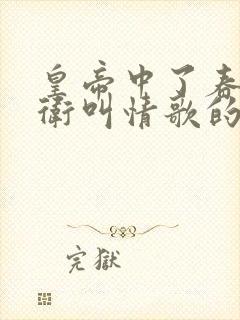 皇帝中了春
衛叫情歌的
完獄